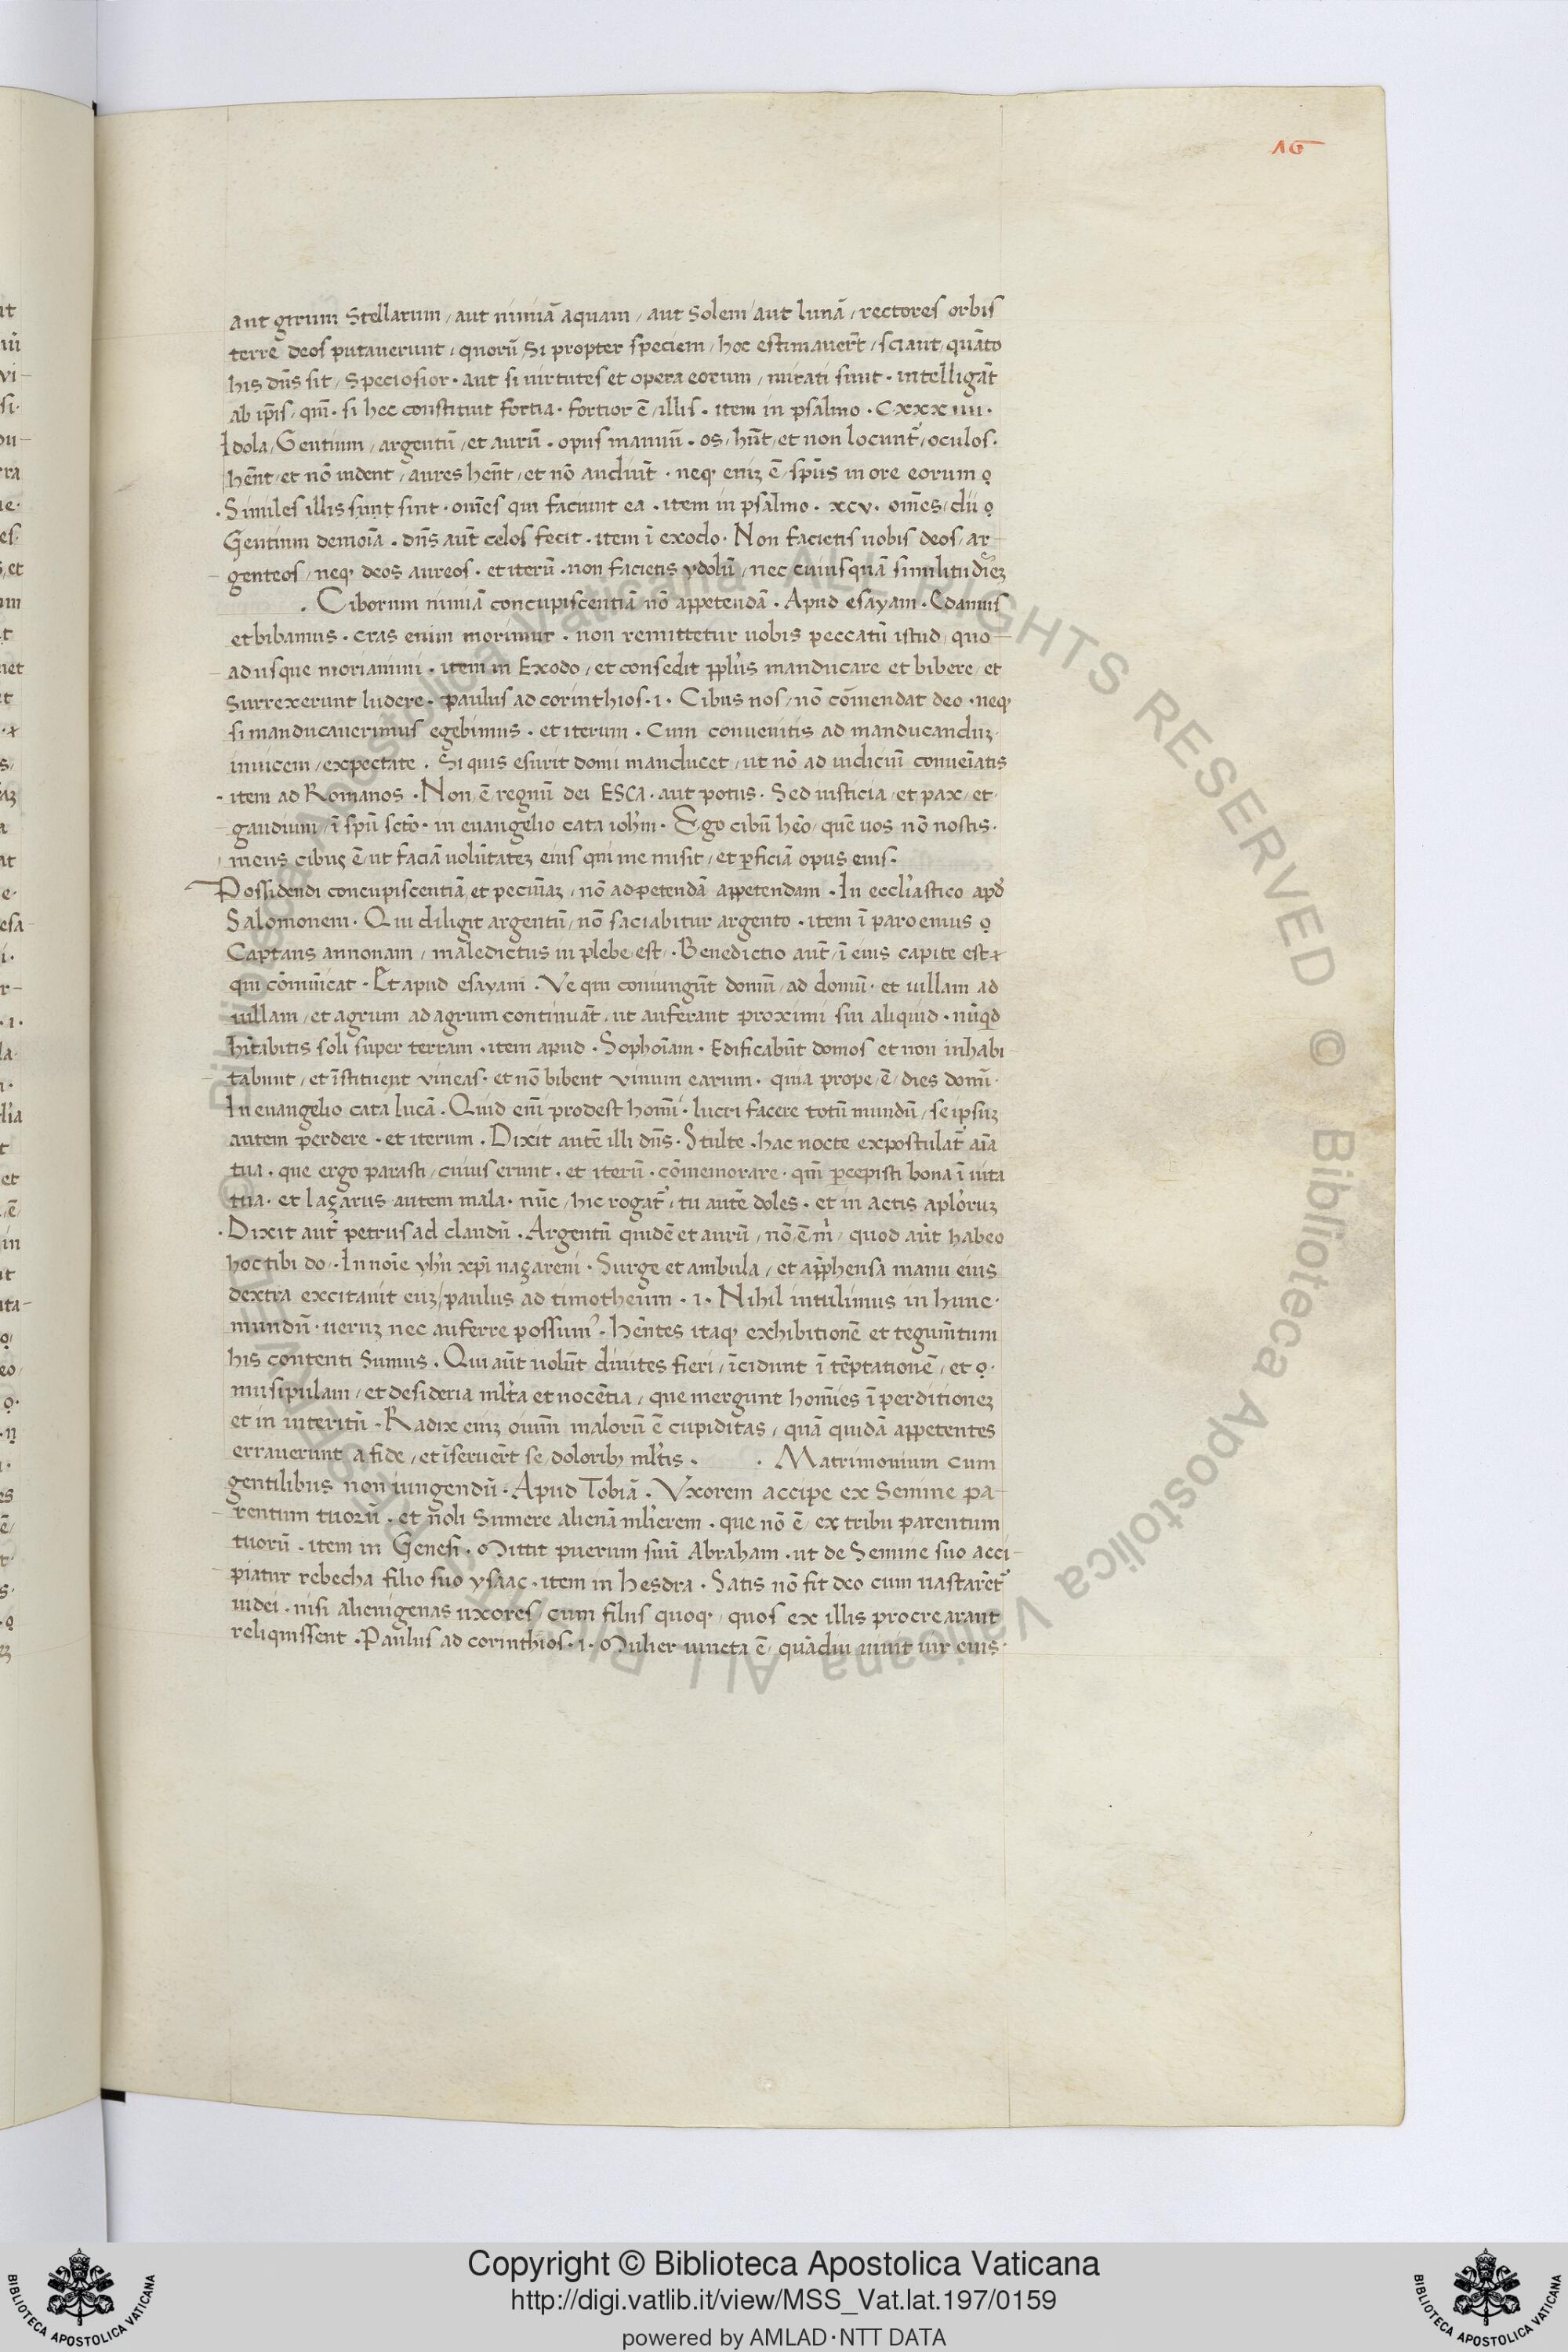 16
aut girum stellarum / aut nimiā aquam / aut solem / aut lunā / rectores orbis
terrę deos putauerunt / quorū / si propter speciem / hoc estimauer̄t / sciant / quāto
his dn̄s sit / speciosior · aut si uirtutes et opera eorum / mirati sunt · intelligāt
ab ip̄is / qm̄ · si hec constituit fortia · fortior ē / illis · item in psalmo · Cxxxiiii ·
Idola / Gentium / argentū / et aurū · opus manuū · os / hn̄t / et non locunt̄ / oculos ·
hēnt / et nō uident / aures hēnt / et nō audiūt · neq' eniꝫ ē / sp̄us in ore eorum ꝙ
· Similes illis sunt sint · om̄es qui faciunt ea · item in psalmo · xcv · om̄es / dii ꝙ
Gentium demoīa · dn̄s aut̄ celos fecit · item ī exodo · Non facietis uobis deos / ar–
genteos / neq' deos aureos · et iterū · non facietis ydolū / nec cuiusquā similitudīeꝫ
· Ciborum nimiā concupiscentiā nō appetendā · Apud esayam · Edamus
et bibamus · cras enim morimur · non remittetur uobis peccatū istud / quo–
adusque moriamini · item in Exodo / et consedit pp̄l's manducare et bibere / et
surrexerunt ludere · paulus ad corinthios · i · Cibus nos / nō cōmendat deo · neq'
si manducauerimus egebimus · et iterum · Cum conuenitis ad manducanduꝫ ·
inuicem / expectate · Si quis esurit domi manducet / ut nō ad iudiciū conueīatis
· item ad Romanos · Non ē / regnū dei ESCA · aut potus · Sed iusticia / et pax / et ·
gaudium / ī sp̄u scto · in euangelio cata ioh'm · Ego cibū hēo / quē uos nō nostis ·
meus cibus ē / ut faciā uolūtateꝫ eius qui me misit / et ꝑficiā opus eius ·
Possidendi concupiscentiā et pecuīaꝫ / nō adpetendā appetendam · In eccl'iastico apd'
Salomonem · Qui diligit argentū / nō saciabitur argento · item ī paroemiis ꝙ
Captans annonam / maledictus in plebe est / · Benedictio aut̄ / ī eius capite est
qui cōmūicat · Et apud esayam · Ve qui coniungūt domū / ad domū · et uillam ad
uillam / et agrum ad agrum continuāt / ut auferant proximi sui aliquid · nūqd
hitabitis soli super terram · item apud · Sophoīam · Edificabūt domos et non inhabi
tabunt / et īstituent vineas · et nō bibent vinum earum · quia prope / ē / dies domī ·
In euangelio cata lucā · Quid enī prodest homī · lucri facere totū mundū / se ipsuꝫ
autem perdere · et iterum · Dixit autē illi dn̄s · Stulte · hac nocte expostulat̄ aīa
tua · que ergo parasti / cuius erunt · et iterū · cōmemorare · qm̄ ꝑcepisti bona ī uita
tua · et laȥarus autem mala · nūc / hic rogat̄ / tu autē doles · et in actis apl'oruꝫ
· Dixit aut̄ petrus ad claudū · Argentū quidē et aurū / nō ē m̄ / quod aūt habeo
hoc tibi do / · In noīe yh'u xp̄i naȥareni · Surge et ambula / et app̄hensa manu eius
dextra excitauit euꝫ / paulus ad timotheum · i · Nihil intulimus in hunc ·
mundū · ueruꝫ nec auferre possum' · hēntes itaq' exhibitionē et tegum̄tum
his contenti sumus · Qui aūt uolūt diuites fieri / īcidunt ī tēptationē / et ꝙ ·
musipulam / et desideria ml'ta et nocētia / que mergunt homīes ī perditioneꝫ
et in interitū · Radix eniꝫ oium̄ malorū ē cupiditas / quā quidā appetentes
errauerunt a fide / et īseruer̄t se / dolorib' ml'tis · · Matrimonium cum
gentilibus non iungendū · Apud Tobiā · Vxorem accipe ex semine pa–
rentum tuorū · et n̄oli sumere alienā ml'ierem · que nō ē / ex tribu parentum
tuorū · item in Genesi · Mittit puerum suū Abraham · ut de semine suo acci–
piatur rebecha filio suo ysaac · item in hesdra · Satis nō fit deo cum uastarēt'
iudei · nisi alienigenas uxores / cum filiis quoq' / quos ex illis procrearant
reliquissent · Paulus ad corinthios · i · Mulier uincta ē / quādiu uiuit uir eius ·
Copyright © Biblioteca Apostolica Vaticana
http://digi.vatlib.it/view/MSS_Vat.lat.197/0159
powered by AMLAD·NTT DATA